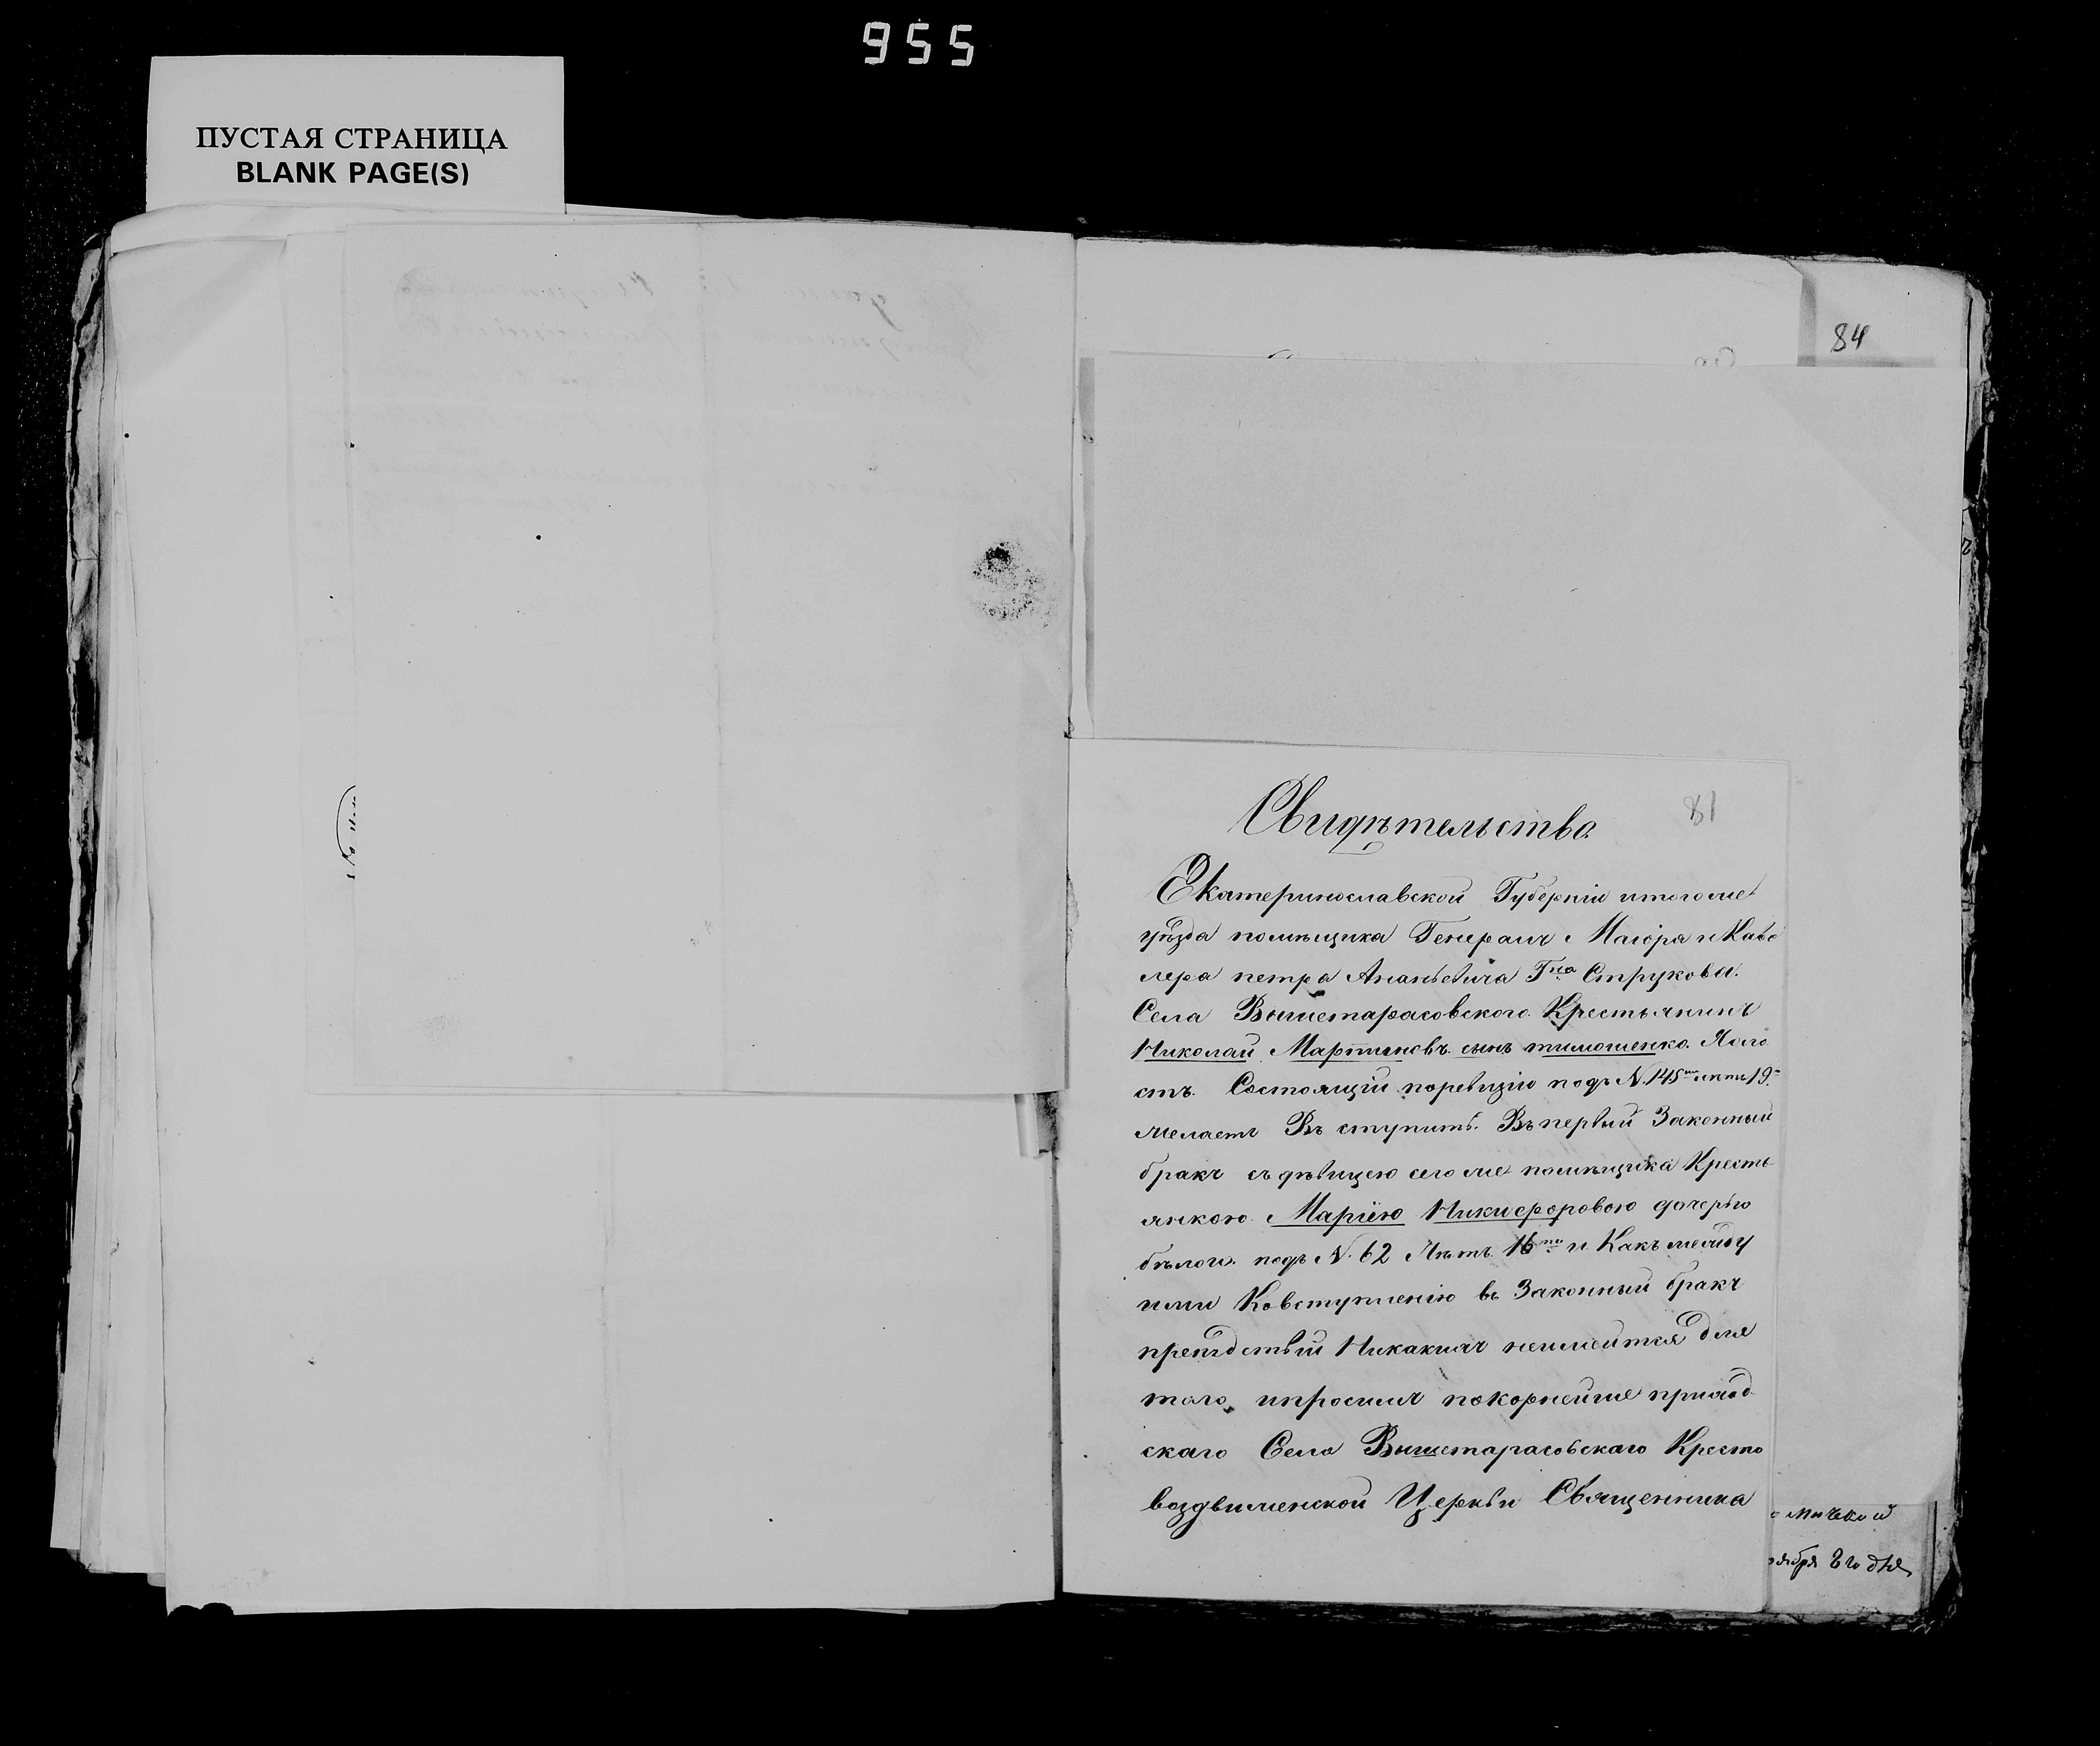 955
ПУСТАЯ СТРАНИЦА
BLANK PAGE(S)
84
81
Свидѣтельства
Екатеринославской Губерніи итогоже
уѣзда помѣщика Генералъ Маіора и Кава
лера петра Ананьевича Гна Струкова.
Села Вышетарасовского Крестьянинъ
Николай Мартиновъ сынъ тимошенко. Холо
стъ. Состоящій поревизіи подъ N. 145 лѣтъ 19.
желаетъ Въ ступить. Въ первый Законный
бракъ съ дѣвицею сегоже помѣщика Кресть
янкою Маріею Никифоровою дочерью
бѣлого. подъ N. 62 Лѣтъ 16ти и Какъ межъду
ими Ковступленію въ Законный бракъ
препядствій Никакихъ неимеится для
того,ипросимъ покорнейше приход
скаго Села Вышетарасовскаго Кресто
воздвиженской Церкви Священника
ября 8го дня